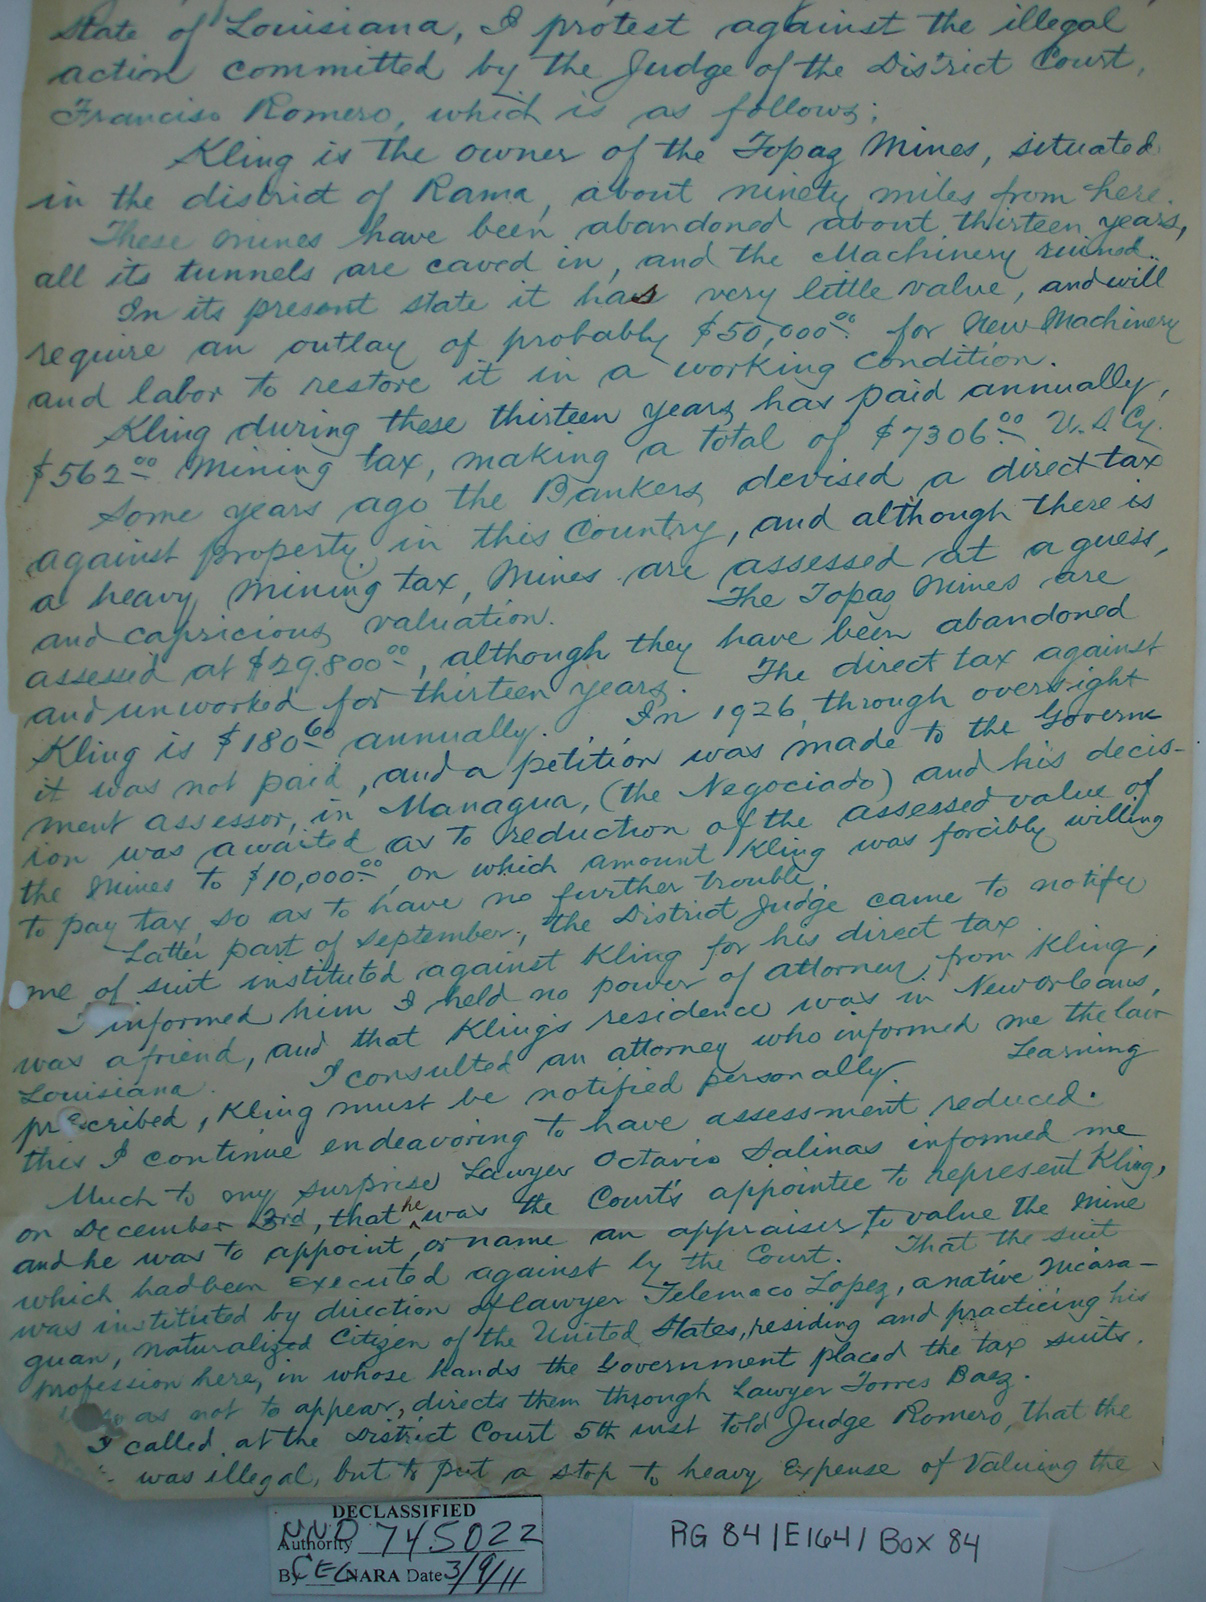 State of Louisiana, I protest against the illegal
action committed by the Judge of the District Court,
Francisco Romero, which is as follows:
Kling is the owner of the Topaz Mines, situated
in the district of Rama, about ninety miles from here.
These mines have been abandoned about thirteen years,
all its tunnels are caved in, and the Machinery ruined.
In its present state it has very little value, and will
require an outlay of probably $50,000.00 for New Machinery
and labor to restore it in a working condition.
Kling during these thirteen years has paid annually,
$562.00 Mining tax, making a total of $7306.00 U.S Cy.
Some years ago the Bankers devised a direct tax
against property in this Country, and although there is
a heavy Mining tax, Mines are assessed at a guess,
and capricious valuation. The Topaz Mines are
assessed at $29.800.00, although they have been abandoned
and unworked for thirteen years. The direct tax against
Kling is $180.60 annually. In 1926, through oversight
it was not paid, and a petition was made to the Govern
ment assessor, in Managua, (the Negociado) and his decis-
ion was awaited as to reduction of the assessed value of
the Mines to $10,000.00, on which amount Kling was forcibly willing
to pay tax, so as to have no further trouble.
Latter part of September, the District Judge came to notify
me of suit instituted against Kling for his direct tax.
I informed him I held no power of attorney, from Kling,
was a friend, and that Kling's residence was in New Orleans,
Louisiana. I consulted an attorney who informed me the law
prescribed, Kling must be notified personally. Learning
this I continue endeavoring to have assessment reduced.
Much to my surprise Lawyer Octavio Salinas informed me
on December 3rd, that he was the Court's appointee to represent Kling,
and he was to appoint, or name an appraiser to value the Mine
which had been executed against by the Court. That the suit
was instituted by direction of Lawyer Telemaco Lopez, a native Nicara-
guan, naturalized Citizen of the United States, residing and practicing his
profession here, in whose hands the Government placed the tax suits.
so as not to appear, directs them through Lawyer Torres Baez.
I called at the District Court 5th inst told Judge Romero, that the
was illegal, but to put a stop to heavy Expense of Valuing the
DECLASSIFIED
Authority NND 745022
By CEC NARA Date 3/9/11
RG 84/E1641 Box 84